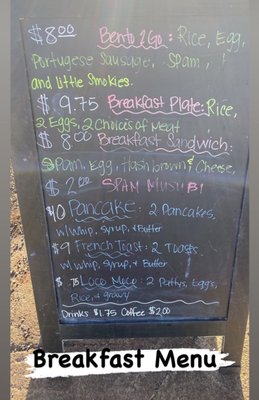 $8.00 Bento 2Go: Rice, Egg,
Portugese Sausage, Spam,
and little Smokies.
$9.75 Breakfast Plate: Rice,
2 Eggs, 2 Choices of Meat
$8.00 Breakfast Sandwich:
Spam, Egg, Hashbrown & Cheese,
$2.00 SPAM MUSUBI
$10 Pancake: 2 Pancakes,
w/ whip, syrup, & Butter
$9 French Toast: 2 Toasts
w/ whip, syrup, & Butter
Loco Moco: 2 Pattys, Eggs,
Rice, & gravy
Drinks $1.75 Coffee $2.00
Breakfast Menu